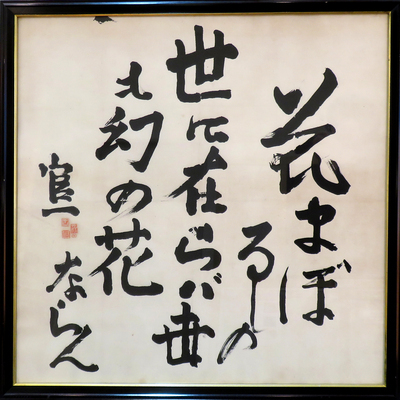 花まぼ
ろしの
世に在らば世
も幻の花
ならん